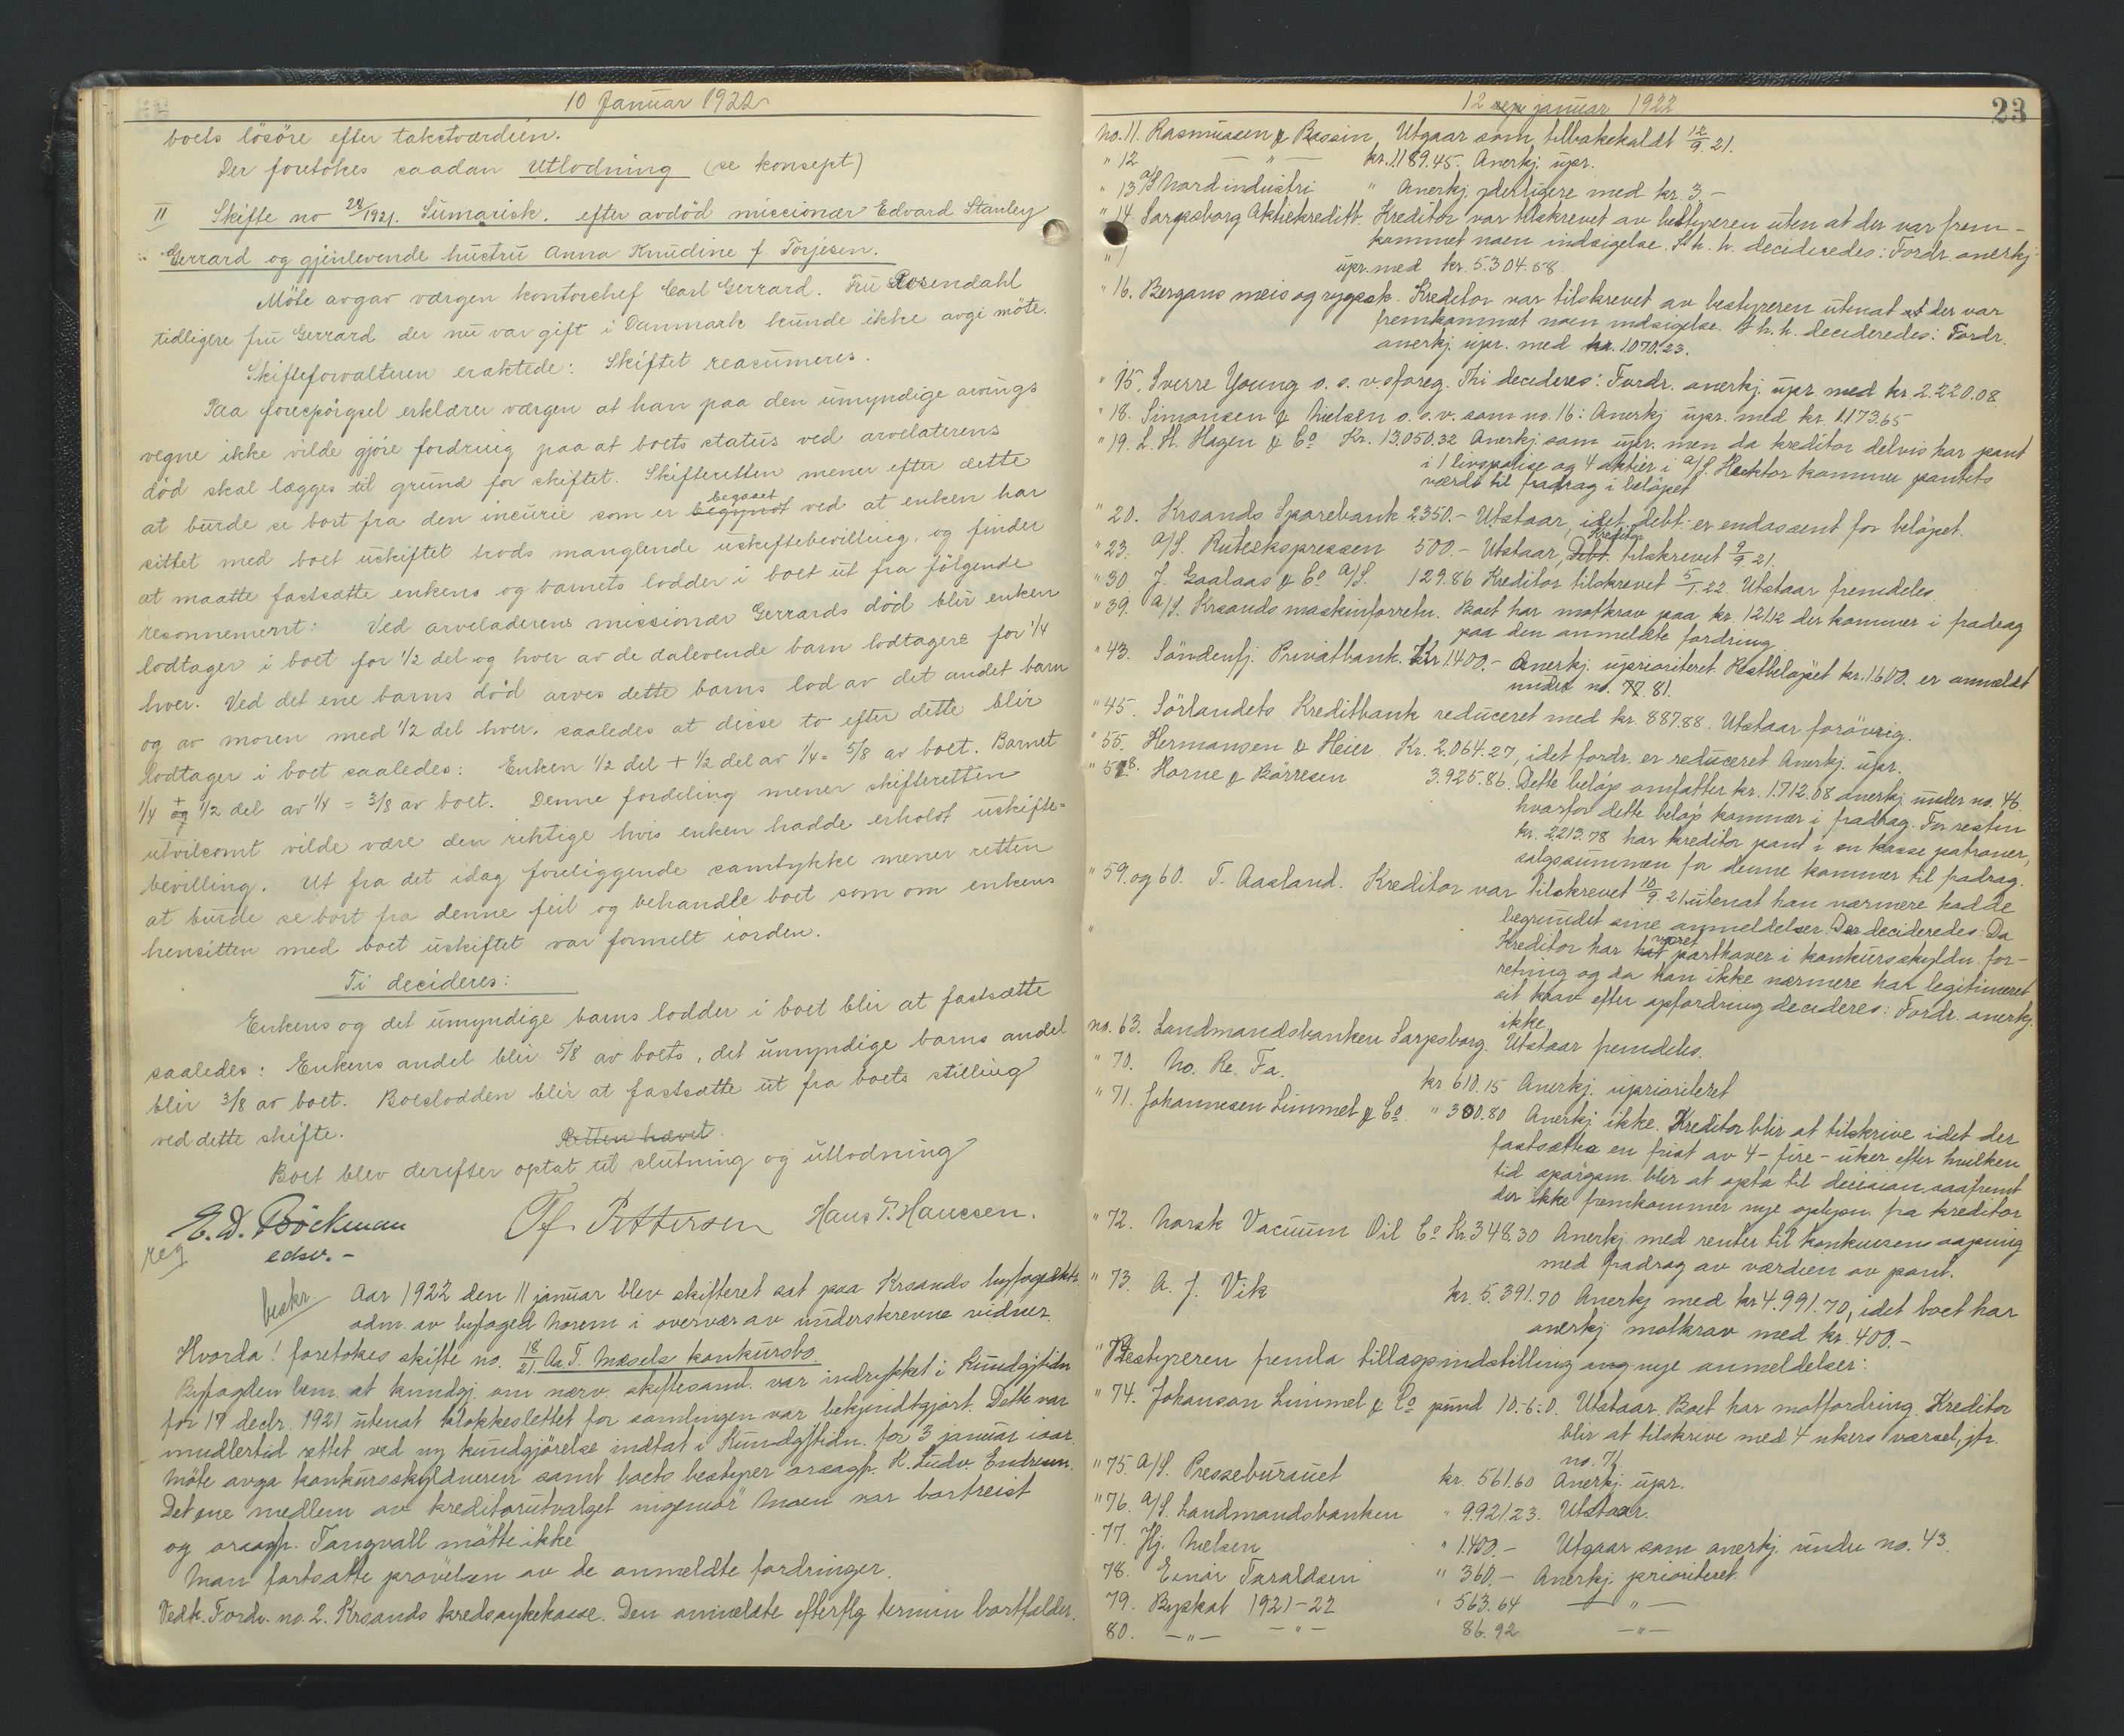 10 Januar 1922
boets lösöre efter takstværdien.
Der foretokes saadan Utlodning (se konsept)
II Skifte no 28/1921. Sumarisk. efter avdöd missionær Edvard Stanley
Gerrard og gjenlevende hustru Anna Knudine f. Torjesen.
Möte avgav værgen kontorchef Carl Gerrard. Fru Rosendahl
tidligere fru Gerrard der nu var gift i Danmark kunde ikke avgi möte.
Skifteforvalteren eraktede: Skiftet reasumeres.
Paa forespörgsel erklærer værgen at han paa den umyndige arvings
vegne ikke vilde gjöre fordring paa at boets status ved arvelaterens
död skal lægges til grund for skiftet. Skifteretten mener efter dette
at burde se bort fra den incurie som er begyndt begaaet ved at enken har
sittet med boet uskiftet trods manglende uskiftebevilling, og finder
at maatte fastsætte enkens og barnets lodder i boet ut fra fölgende
resonnement: Ved arveladerens missionær Gerrards död blir enken
lodtager i boet for 1/2 del og hver av de dalevende barn lodtagere for 1/4
hver. Ved det ene barns död arves dette barns lod av det andet barn
og av moren med 1/2 del hver, saaledes at disse to efter dette blir
lodtager i boet saaledes: Enken 1/2 del + 1/2 del av 1/4 = 5/8 av boet. Barnet
1/4 og + 1/2 del av 1/4 = 3/8 av boet. Denne fordeling mener skifteretten
utvilsomt vilde være den riktige hvis enken hadde erholdt uskifte=
bevilling. Ut fra det idag foreliggende samtykke mener retten
at burde se bort fra denne feil og behandle boet som om enkens
hensitten med boet uskiftet var formelt iorden.
Ti decideres:
Enkens og det umyndige barns lodder i boet blir at fastsætte
saaledes: Enkens andel blir 5/8 av boets, det umyndige barns andel
blir 3/8 av boet. Boeslodden blir at fastsætte ut fra boets stilling
ved dette skifte.
Retten hævet.
Boet blev derefter optat til slutning og utlodning
E. D. Böckman Th. Pettersen Hans P. Hanssen.
reg edsv. -
beskr. Aar 1922 den 11 januar blev skifteret sat paa Krsands byfogedktr.
adm. av byfoged Norem i overvær av underskrevne vidner.
Hvorda! foretokes skifte no. 18/21. Aa. T. Mæsels konkursbo.
Byfogden bem. at kundgj. om nærv. skiftesaml. var indrykket i Kundgjtidn
for 17 decbr. 1921 utenat klokkeslettet for samlingen var bekjendtgjort. Dette var
imidlertid rettet ved ny kundgjörelse indtat i Kundgjtidn. for 3 januar iaar.
Möte avga konkursskyldneren samt boets bestyrer orsagf. K. Ludv. Endresen.
Det ene medlem av kreditorutvalget ingeniör Moen var bortreist
og orsagf. Tangvall mötte ikke
Man fortsatte prövelsen av de anmeldte fordringer.
Vedk. Fordr. no. 2. Krsands kredssykekasse. Den anmeldte efterflg termin bortfalder.
12 januar 1922
23
no. 11. Rasmussen & Bessin, Utgaar som tilbakekaldt 12/9. 21.
" 12 — " — kr. 1189.45. Anerkj. upr.
" 13 A/S Nordindustri " Anerkj. yderligere med kr. 3,-
" 14. Sarpsborg Aktiekreditb. Kreditor var tilskrevet av bestyreren uten at der var frem-
kommet noen indsigelse. S. h. h. decideredes: Fordr. anerkj
upr. med kr. 5.304.58.
" 16. Bergans meis og rygsæk. Kreditor var tilskrevet av bestyreren utenat der var
fremkommet noen indsigelse. S. h. h. decideredes: Fordr.
anerkj. upr. med kr. 1070.23.
" 15. Sverre Young o. s. v. sforeg. Thi decideres: Fordr. anerkj. upr. med kr. 2.220.08
" 18. Simonsen & Nielsen o. s. v. som no. 16: Anerkj upr. med kr. 1173.65
" 19. L. H. Hagen & Co Kr. 13.050.32 Anerkj. som upr. men da kreditor delvis har pant
i 1 livspolise og 4 aktier i A/S. Hektor kommer pantets
værdi til fradrag i belöpet
" 20. Krsands Sparebank 2350.- Utstaar, idet debt. er endossent for belöpet.
" 23. A/S. Rutekspressen 500.- Utstaar, Debt. Kreditor tilskrevet 9/9. 21.
" 30 J. Gaalaas & Co A/S. 129.86 Kreditor tilskrevet 5/1. 22. Utstaar fremdeles.
" 39. A/S. Krsands maskinforretn. Boet har motkrav paa kr. 121.12 der kommer i fradrag
paa den anmeldte fordring
" 43. Söndenfj. Privatbank. Kr 1400.- Anerkj. uprioriteret. Restbelöpet kr. 1.600. er anmeldt
under no. 77. 81.
" 45. Sörlandets Kreditbank reduceret med kr. 887.88. Utstaar forövrig.
" 55. Hermansen & Heier Kr. 2.064.27, idet fordr. er reduceret. Anerkj. upr.
" 58. Horne & Börresen 3.925.86. Dette belöp omfatter kr. 1.712.08 anerkj under no. 46
hvorfor dette belöp kommer i fradrag. For resten
kr. 2213.78 har kreditor pant i en kasse patroner,
salgssummen for denne kommer til fradrag.
" 59. og 60. T. Aasland. Kreditor var tilskrevet 10/9. 21 utenat han nærmere hadde
begrundet sine anmeldelser. Der decideredes: Da
Kreditor har hat været parthaver i konkursskyldn. for-
retning og da han ikke nærmere har legitimeret
sit krav efter opfordring decideres: Fordr. anerkj.
ikke
no. 63. Landmandsbanken Sarpsborg. Utstaar fremdeles.
" 70. No. Re. Fa. kr 610.15 Anerkj. uprioriteret
" 71. Johannesen Limmel & Co. " 300.80 Anerkj ikke. Kreditor blir at tilskrive idet der
fastsættes en frist av 4 - fire - uker efter hvilken
tid spörgsm. blir at opta til decision, saafremt
der ikke fremkommer nye oplysn. fra kreditor
" 72. Norsk Vacuum Oil Co Kr. 348.30 Anerkj. med renter til konkursens aapning
med fradrag av værdien av pant.
" 73. A. J. Vik kr. 5.391.70 Anerkj med kr 4.991.70, idet boet har
anerkj motkrav med kr. 400.-
Bestyreren fremla tillægsindstilling ang nye anmeldelser:
" 74. Johanson Limmel & Co pund 10-6-0. Utstaar. Boet har motfordring. Kreditor
blir at tilskrive med 4 ukers varsel, jfr.
no. 71
" 75. A/S. Pressebureauet kr. 561.60 Anerkj. upr.
" 76. A/S. Landmandsbanken " 9.921.23. Utstaar.
" 77. Hj. Nielsen " 1.400.- Utgaar som anerkj. under no. 43.
78. Einar Taraldsen " 360.- Anerkj. prioriteret.
79. Byskat 1921-22 " 563.64 — " —
80. — " — — " — 86.92 — " —